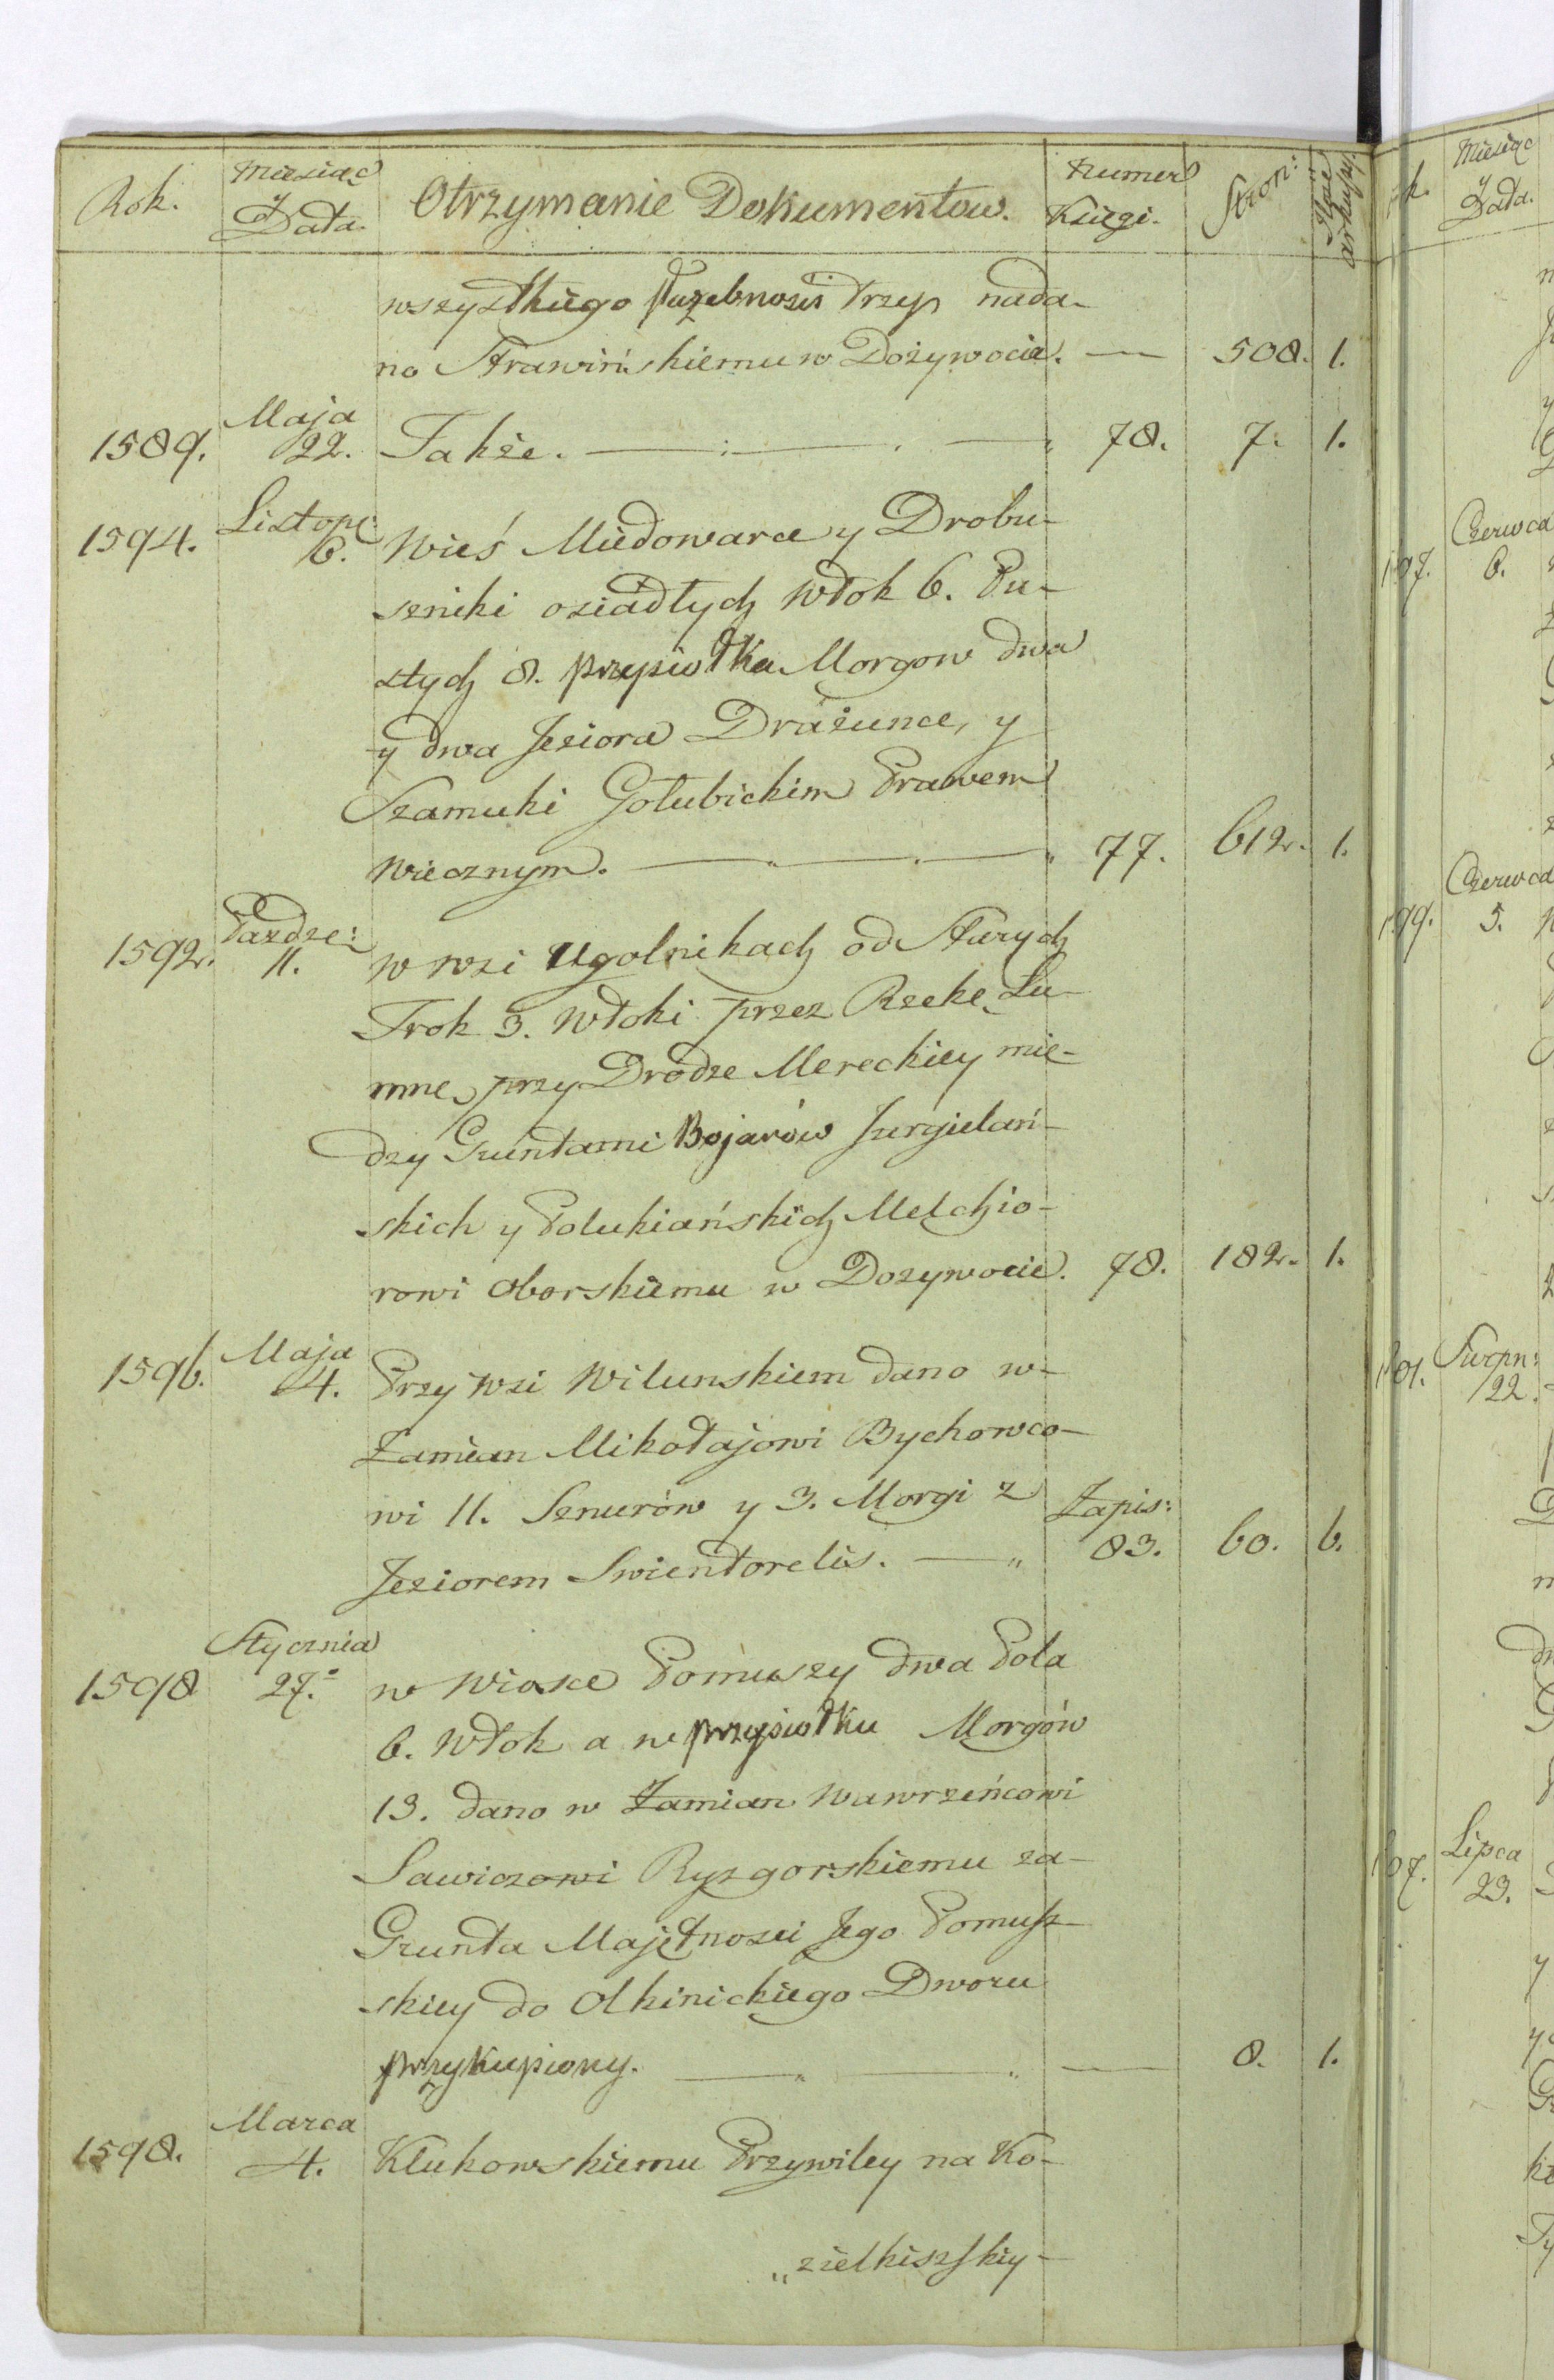 Rok. Miesiąc y Data. Otrzymanie Dokumentow. Numer Księgi. Stron: arkuszy.
wszystkiego służebnosci Trzy nada-
no Strawińskiemu w Dożywocie. — 508. 1.
1589. Maja 22. Także. — 78. 7. 1.
1594. Listop: 6. Wieś Miedowarce y Drobu-
szniki osiadłych włok 6. Pu-
stych 8. przysiołka Morgow dwa
y dwa Jeziora Drażunce, y
Szamuki Gołubickim Prawem
wiecznym. — 77. 612. 1.
1592. Pazdze: 11. w wsi Ugolnikach od Starych
Trok 3. włoki przez Rzekę Lu-
mnę przy Drodze Mereckiey mię-
dzy Gruntami Bojarów Jurgielań-
skich y Polukiańskich Melchio-
rowi Oborskiemu w Dozywocie. 78. 182. 1.
1596. Maja 4. Przy wsi Wilunskiem dano w-
Zamian Mikołajowi Bychowco-
wi 11. Sznurów y 3. Morgi z Zapis:
Jeziorem Swientorelis. — 83. 60. 6.
1598 Stycznia 27. w Wiosce Pomuszy dwa Pola
6. Włok a w przysiołku Morgów
13. dano w Zamian Wawrzeńcowi
Sawiczowi Ryzgorskiemu za-
Grunta Majętnosci Jego Pomusz-
skiey do Olkinickiego Dworu
przykupiony. — — 8. 1.
1598. Marca 4. Klukowskiemu Przywiley na Ko-
„zielkiszskiy-
Miesiąc y Data.
97. Czerwca 6.
99. Czerwca 5.
01. Sierpn: 22.
07. Lipca 23.